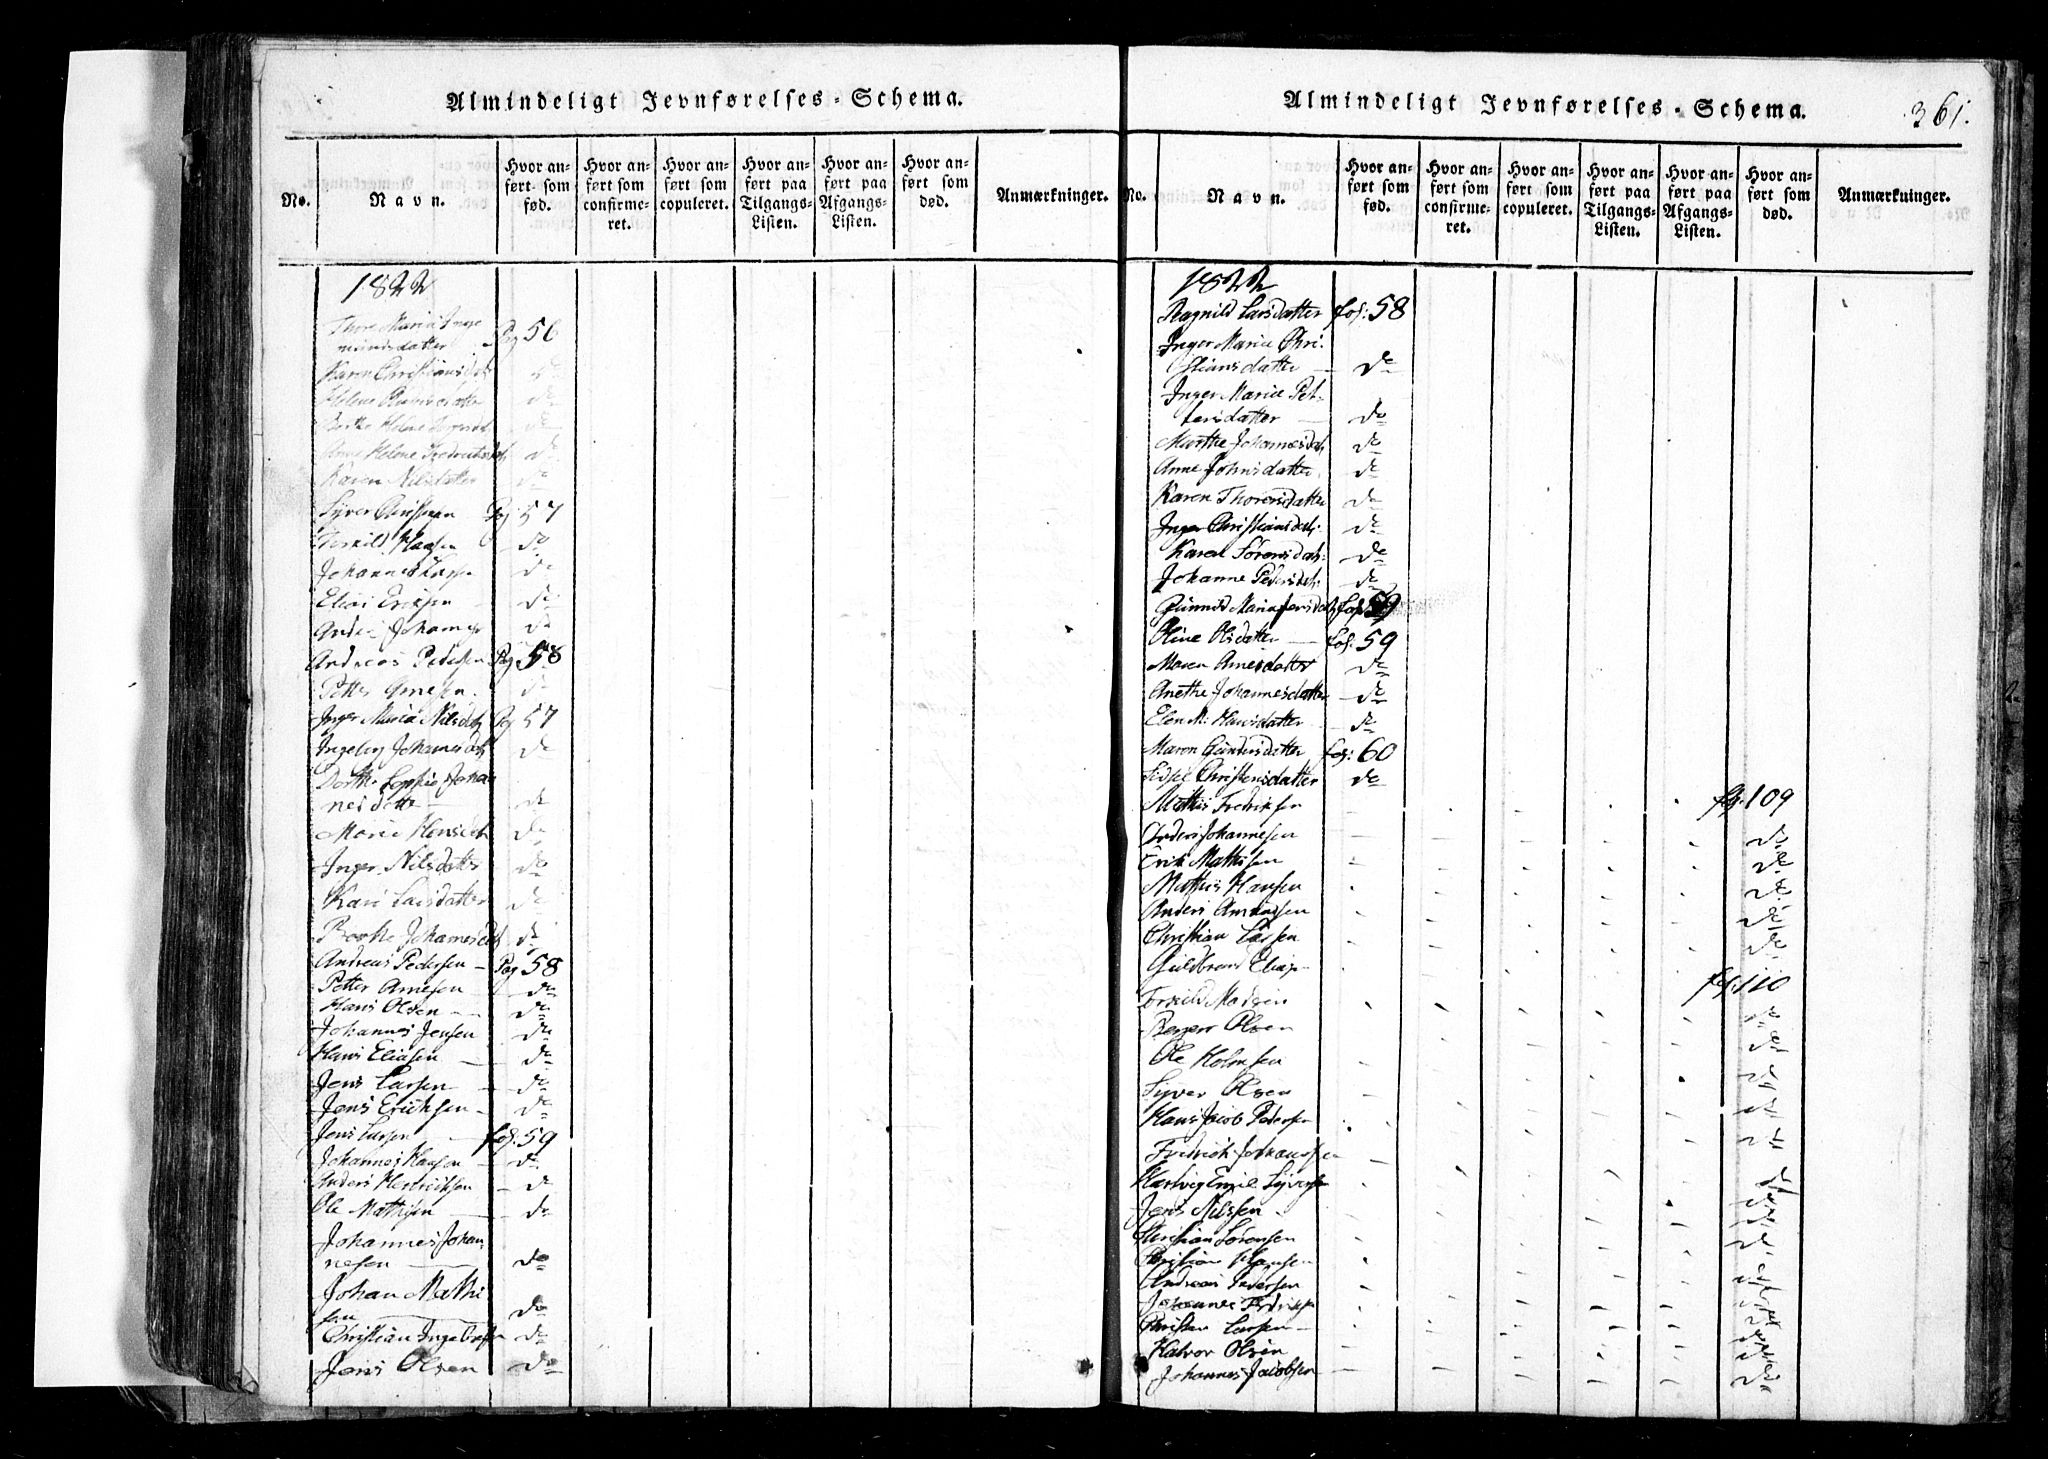 Almindeligt Jevnførelses-Schema.
No.
Navn.
Hvor an-
ført som
fød.
Hvor an-
ført som
confirme-
ret.
Hvor an-
ført som
copuleret.
Hvor an-
ført paa
Tilgangs-
Listen.
Hvor an-
ført paa
Afgangs-
Listen.
Hvor an-
ført som
død.
Anmærkninger.
1822
Thore Maria Inge
mundsdatter Pag 56
Karen Christiansdat do
Helene do
Berthe Helene do
Anne Helene Fredriksdat do
Karen Nilsdatter do
Syver Christian Pag 57
Hansen do
Johannes Larsen do
Elias Eriksen do
Anders Johannesen do
Andreas Pedersen Pag 58
Petter Arnesen do
Inger Maria Nilsdat Pag 57
Ingebor Johannesdat do
Dorthe Sophie Johan
nesdatter do
Marie Hansdat do
Inger Nilsdatter do
Kari Larsdatter do
Berthe Johannesdat do
Andreas Pedersen - Pag 58
Petter Arnesen do
Hans Olsen do
Johannes Jensen do
Hans Eliasen do
Jens Larsen do
Jens Eriksen do
Jens Larsen fol: 59
Johannes Hansen do
Anders Hendriksen do
Ole Mathisen do
Johannes Johan-
nesen do
Johan Mathi
sen do
Christian Ingebretsen do
Jens Olsen do
Almindeligt Jevnførelses-Schema.
361.
No.
Navn.
Hvor an-
ført som
fød.
Hvor an-
ført som
confirme-
ret.
Hvor an-
ført som
copuleret.
Hvor an-
ført paa
Tilgangs-
Listen.
Hvor an-
ført paa
Afgangs-
Listen.
Hvor an-
ført som
død.
Anmærkninger.
1822
Ragnild Larsdatter fol: 58
Inger Marie Chri-
stiansdatter do
Inger Marie Pet-
tersdatter do
Marthe Johannesdat do
Anne Johnsdatter do
Karen Thorersdatter do
Inger Christiansdat: do
Karen Sørensdat: do
Johanne Pedersdat: do
Gunnild Maria fol 59
Oline Olsdatter fol: 59
Maren Arnesdatter do
Anethe Johannesdatter do
Elen M: Hansdatter do
Maren Gundersdatter fol: 60
Sidsel Christensdatter do
Mathis Fredriksen fol: 109
Anders Johannesen do
Erik Mathisen do
Mathis Hansen do
Anders Amundsen do
Christian Larsen do
Guldbrand Elias fol: 110
Torkild Madsen do
Olsen do
Ole Holmsen do
Syver Olsen do
Hans Jacob Pedersen do
Fredrich Johannesen
Hartvig Emil Syversen do
Jens Nilssen do
Christian Sørensen do
Christian Hansen do
Andreas Pedersen do
Johannes Fredriksen do
Christen Larsen do
Halvor Olsen do
Johannes Jacobsen do